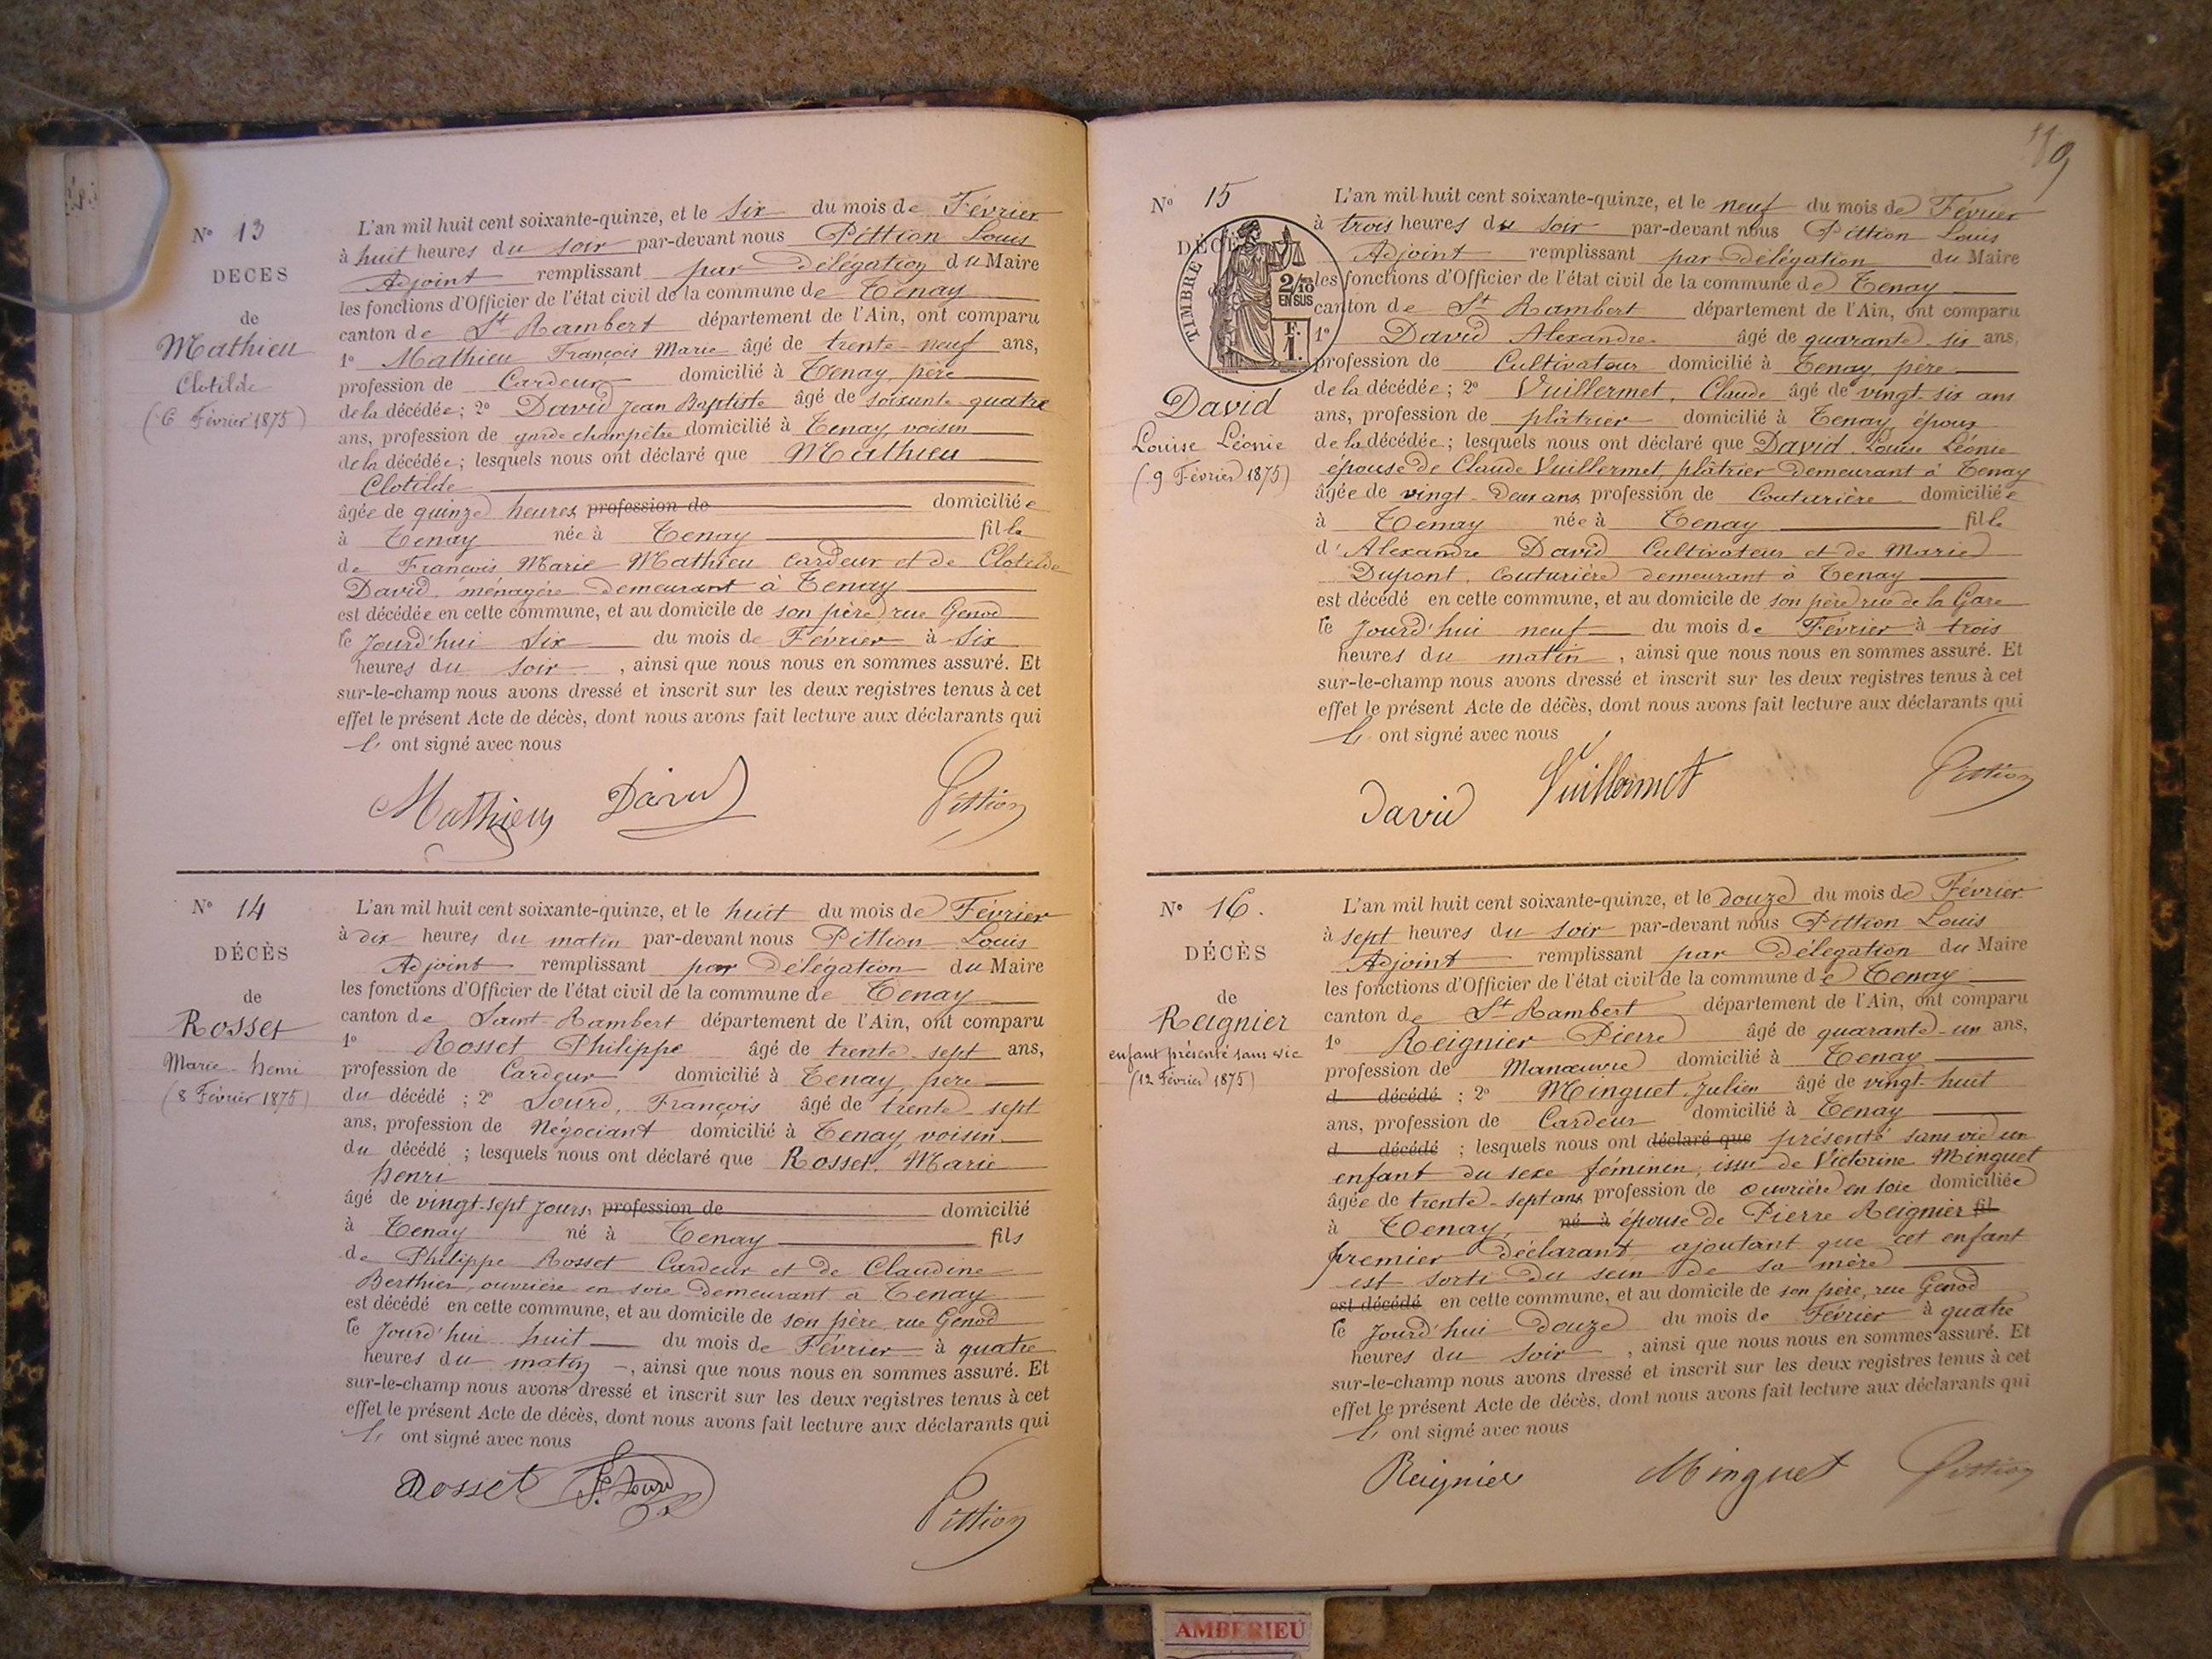 N° 13
DÉCÈS
de
Mathieu
Clotilde
(6 Février 1875)
L'an mil huit cent soixante-quinze, et le six du mois de Février
à huit heures du soir par-devant nous Pittion Louis
Adjoint remplissant par délégation du Maire
les fonctions d'Officier de l'état civil de la commune de Tenay
canton de St Rambert département de l'Ain, ont comparu
1° Mathieu François Marie âgé de trente-neuf ans,
profession de Cardeur domicilié à Tenay, père
de la décédée; 2° David Jean Baptiste âgé de soixante quatre
ans, profession de garde champêtre domicilié à Tenay, voisin
de la décédée; lesquels nous ont déclaré que Mathieu
Clotilde
âgée de quinze heures profession de domiciliée
à Tenay née à Tenay fille
de François Marie Mathieu cardeur et de Clotilde
David, ménagère demeurant à Tenay
est décédée en cette commune, et au domicile de son père rue Genod
le jourd'hui six du mois de Février à six
heures du soir, ainsi que nous nous en sommes assuré. Et
sur-le-champ nous avons dressé et inscrit sur les deux registres tenus à cet
effet le présent Acte de décès, dont nous avons fait lecture aux déclarants qui
l' ont signé avec nous
Mathieu David Pittion
N° 14
DÉCÈS
de
Rosset
Marie henri
(8 Février 1875)
L'an mil huit cent soixante-quinze, et le huit du mois de Février
à dix heures du matin par-devant nous Pittion Louis
Adjoint remplissant par délégation du Maire
les fonctions d'Officier de l'état civil de la commune de Tenay
canton de Saint-Rambert département de l'Ain, ont comparu
1° Rosset Philippe âgé de trente-sept ans,
profession de Cardeur domicilié à Tenay, père
du décédé ; 2° Sourd, François âgé de trente-sept
ans, profession de Négociant domicilié à Tenay, voisin
du décédé ; lesquels nous ont déclaré que Rosset, Marie
henri
âgé de vingt-sept jours, profession de domicilié
à Tenay né à Tenay fils
de Philippe Rosset Cardeur et de Claudine
Berthier, ouvrière en soie demeurant à Tenay
est décédé en cette commune, et au domicile de son père rue Genod
le jourd'hui huit du mois de Février à quatre
heures du matin, ainsi que nous nous en sommes assuré. Et
sur-le-champ nous avons dressé et inscrit sur les deux registres tenus à cet
effet le présent Acte de décès, dont nous avons fait lecture aux déclarants qui
l' ont signé avec nous
Rosset F. Sourd Pittion
N° 15
DÉCÈS
TIMBRE
2/10
EN SUS
F.
1.
David
Louise Léonie
(9 Février 1875)
L'an mil huit cent soixante-quinze, et le neuf du mois de Février
à trois heures du soir par-devant nous Pittion Louis
Adjoint remplissant par délégation du Maire
les fonctions d'Officier de l'état civil de la commune de Tenay
canton de St Rambert département de l'Ain, ont comparu
1° David Alexandre âgé de quarante-six ans,
profession de Cultivateur domicilié à Tenay, père
de la décédée; 2° Vuillermet, Claude âgé de vingt-six ans
ans, profession de plâtrier domicilié à Tenay, époux
de la décédée; lesquels nous ont déclaré que David Louise Léonie
épouse de Claude Vuillermet, plâtrier demeurant à Tenay
âgée de vingt-deux ans profession de Couturière domiciliée
à Tenay née à Tenay fille
d'Alexandre David Cultivateur et de Marie
Dupont, couturière demeurant à Tenay
est décédé en cette commune, et au domicile de son père rue de la Gare
le jourd'hui neuf du mois de Février à trois
heures du matin, ainsi que nous nous en sommes assuré. Et
sur-le-champ nous avons dressé et inscrit sur les deux registres tenus à cet
effet le présent Acte de décès, dont nous avons fait lecture aux déclarants qui
l' ont signé avec nous
David Vuillermet Pittion
N° 16.
DÉCÈS
de
Reignier
enfant présenté sans vie
(12 Février 1875)
L'an mil huit cent soixante-quinze, et le douze du mois de Février
à sept heures du soir par-devant nous Pittion Louis
Adjoint remplissant par Délégation du Maire
les fonctions d'Officier de l'état civil de la commune de Tenay
canton de St Rambert département de l'Ain, ont comparu
1° Reignier Pierre âgé de quarante-un ans,
profession de Manœuvre domicilié à Tenay
d décédé ; 2° Minguet Julien âgé de vingt-huit
ans, profession de Cardeur domicilié à Tenay
d décédé ; lesquels nous ont déclaré que présenté sans vie un
enfant du sexe féminin, issu de Victorine Minguet
âgée de trente-sept ans profession de ouvrière en soie domiciliée
à Tenay, né à épouse de Pierre Reignier fil
premier déclarant, ajoutant que cet enfant
est sorti du sein de sa mère
est décédé en cette commune, et au domicile de son père, rue Genod
le jourd'hui douze du mois de Février à quatre
heures du soir, ainsi que nous nous en sommes assuré. Et
sur-le-champ nous avons dressé et inscrit sur les deux registres tenus à cet
effet le présent Acte de décès, dont nous avons fait lecture aux déclarants qui
l' ont signé avec nous
Reignier Minguet Pittion
AMBERIEU